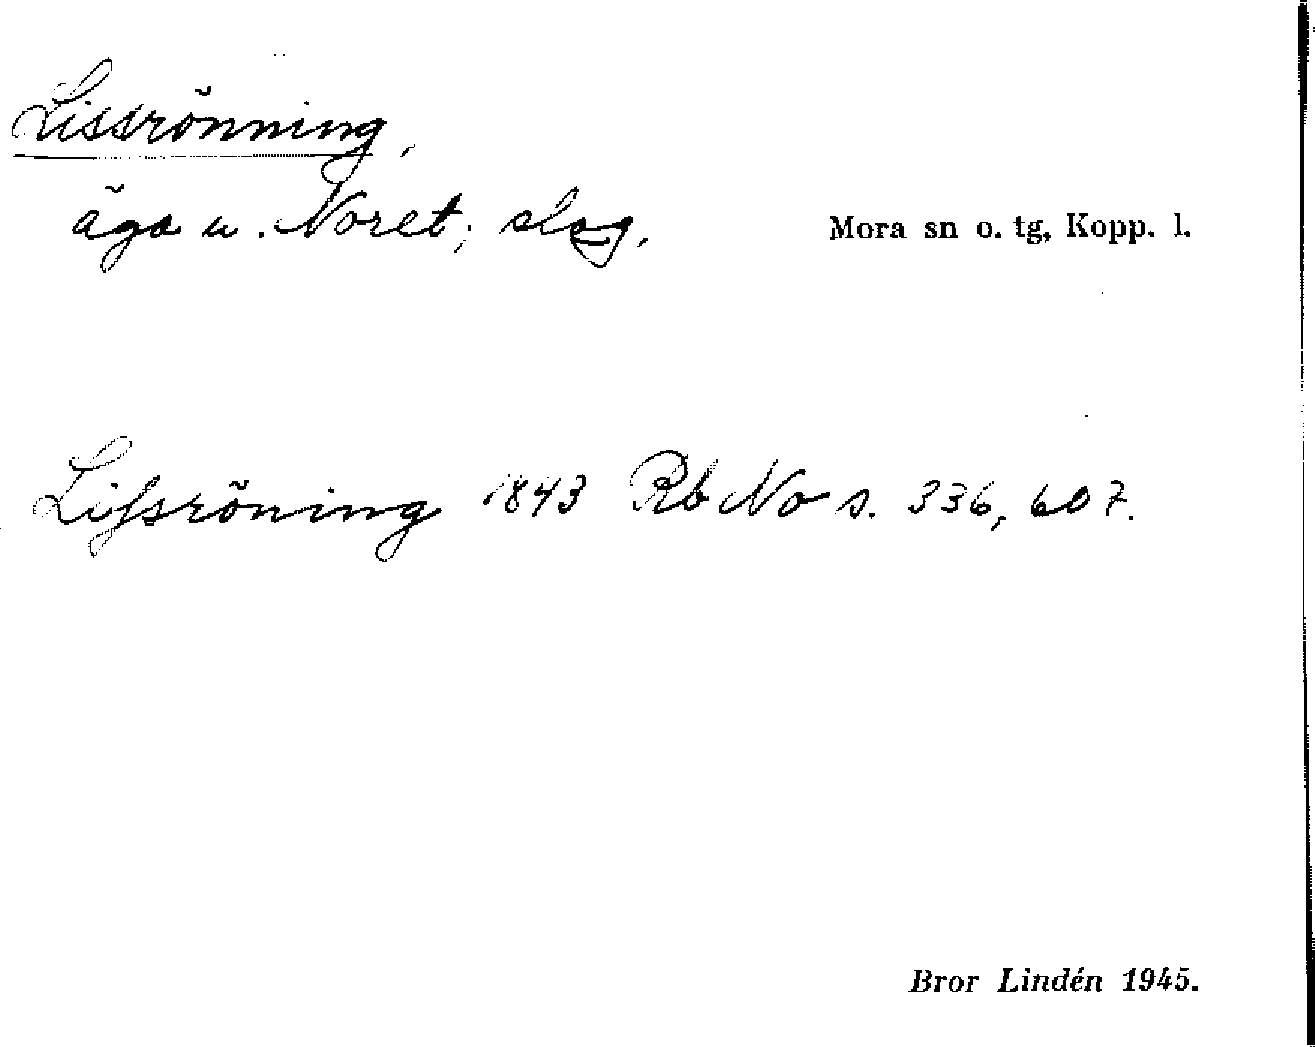 Lissrönning,
äga u. Noret; slog.
Mora sn o. tg, Kopp. l.
Lissröning 1843 Rb No s. 336, 607.
Bror Lindén 1945.